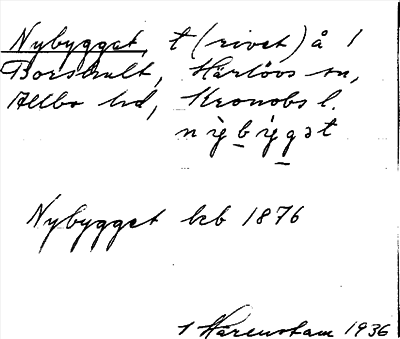 Nybygget, t (rivet) å 1
Borshult, Härlövs sn,
Allbo hd, Kronobs l.
nỳbỳgət
Nybygget hcb 1876
1 Harenstam 1936